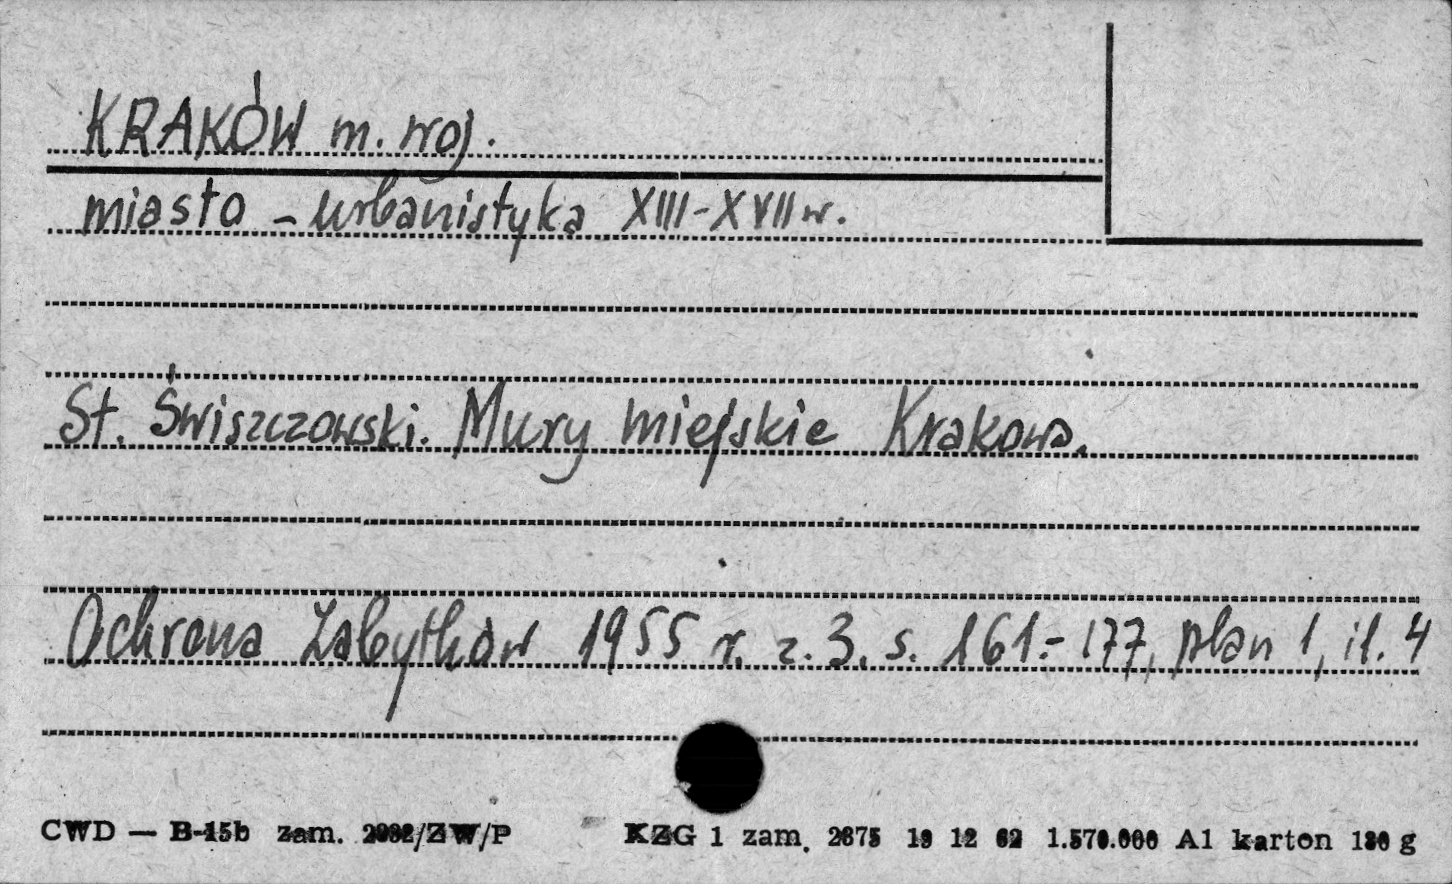 KRAKÓW m. woj.
miasto – urbanistyka XIII-XVII w.
St. Świszczowski. Mury miejskie Krakowa.
Ochrona Zabytków 1955 r. z. 3. s. 161.- 177, plan 1, il. 4
CWD — B-15b zam. /ZW/P KZG 1 zam. 2875 19 12 62 1.570.000 A1 karton g